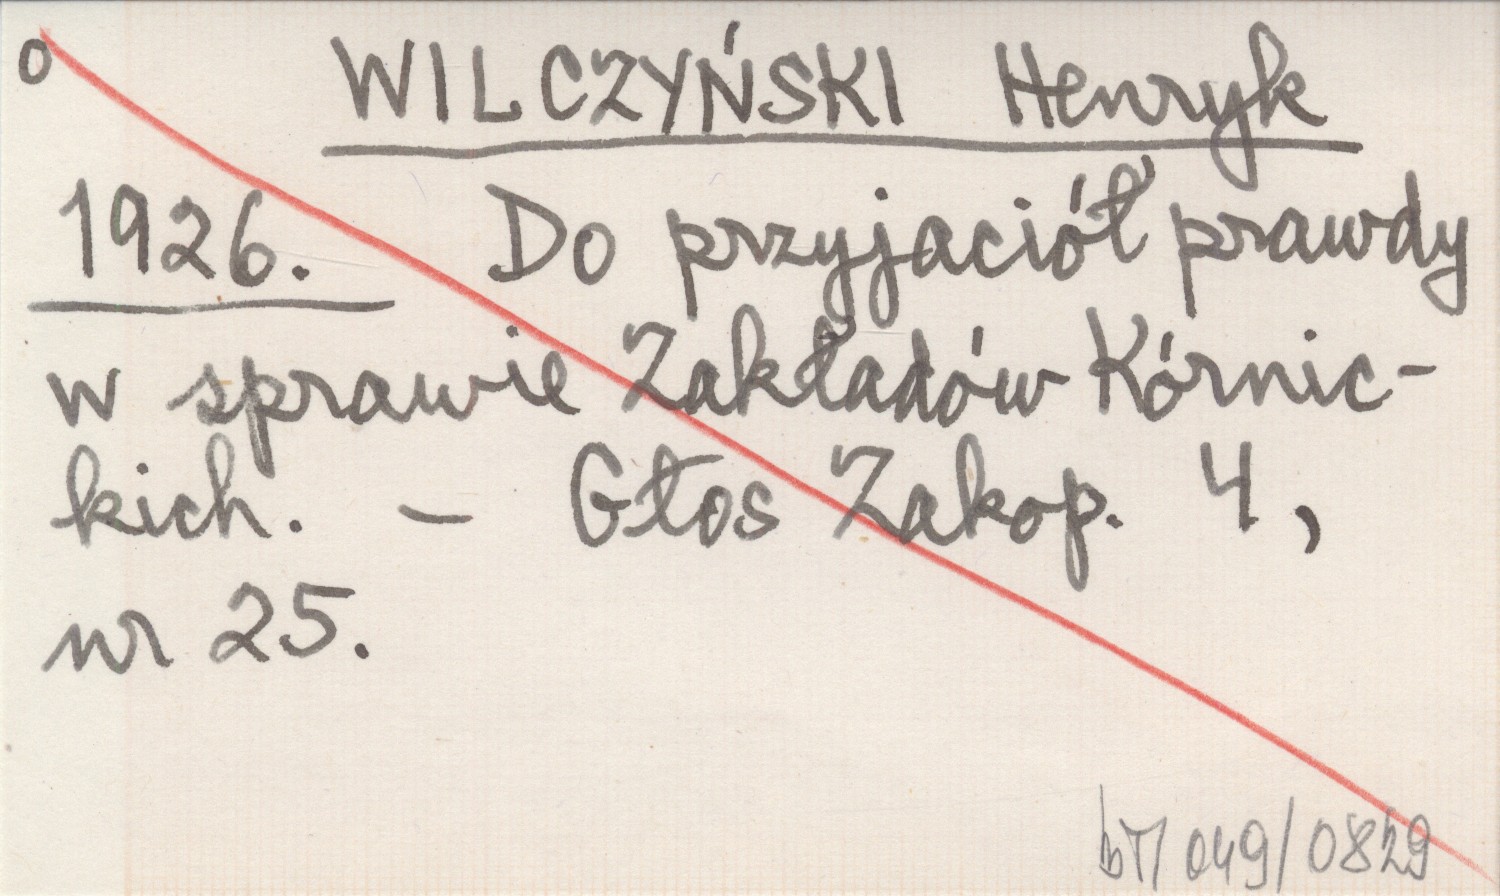 o WILCZYŃSKI Henryk
1926. Do przyjaciół prawdy
w sprawie Zakładów Kórnic-
kich. – Głos Zakop. 4,
nr 25.
049/0829